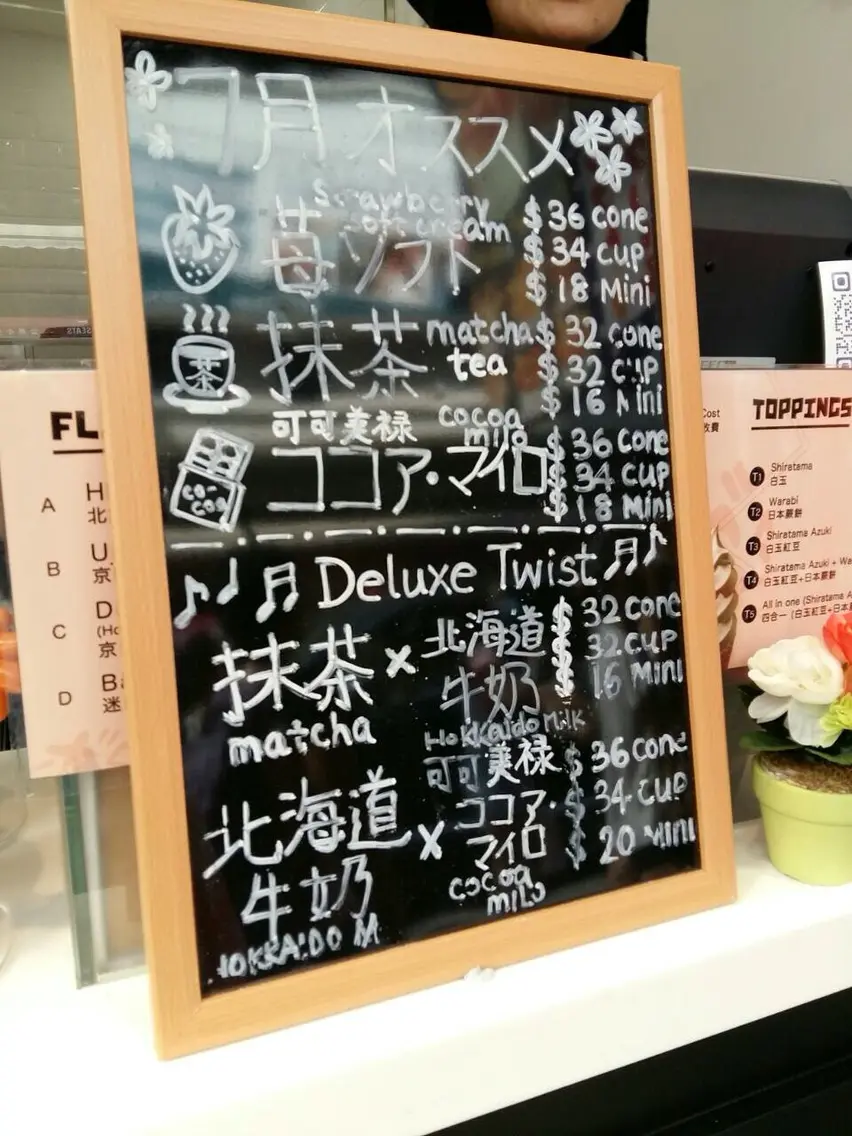 7月オススメ
strawberry
soft cream
苺ソフト
$36 cone
$34 cup
$18 Mini
抹茶
matcha
tea
$32 cone
$32 CUP
$16 Mini
茶
可可美禄
cocoa
milo
ココア・マイロ
$36 cone
$34 cup
$18 Mini
co-
coa
Deluxe Twist
抹茶 × 北海道
牛奶
matcha
Hokkaido Milk
$32 cone
$32 cup
$16 Mini
北海道
牛奶
HOKKAIDO M
×
可可美禄
ココア・
マイロ
cocoa
milo
$36 cone
$34 cup
$20 Mini
FL
A
H
北
B
U
京
C
D
(Ho
京
D
Ba
迷
Cost
收費
TOPPINGS
T1 Shiratama
白玉
T2 Warabi
日本蕨餅
T3 Shiratama Azuki
白玉紅豆
T4 Shiratama Azuki + Wa
白玉紅豆+日本蕨餅
T5 All in one (Shiratama A
四合一 (白玉紅豆+日本